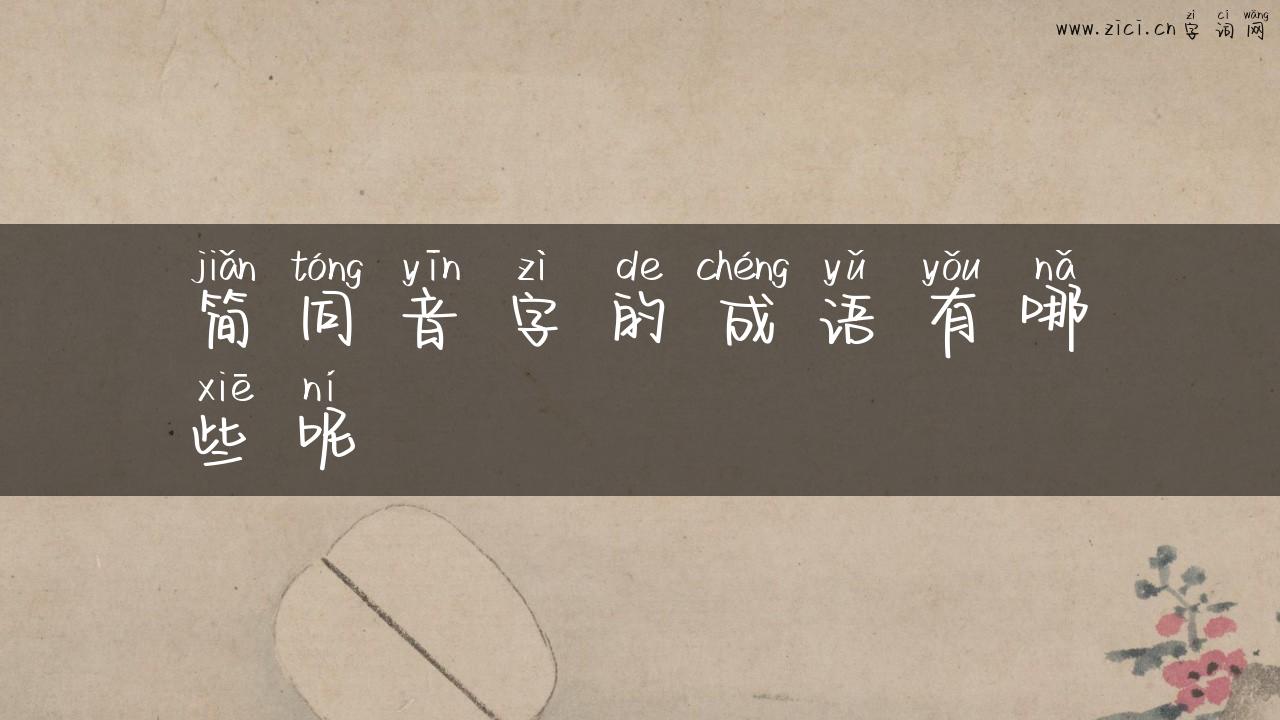 zì cí wǎng
www.zici.cn 字词网
jiǎn tóng yīn zì de chéng yǔ yǒu nǎ
简同音字的成语有哪
xiē ní
些呢